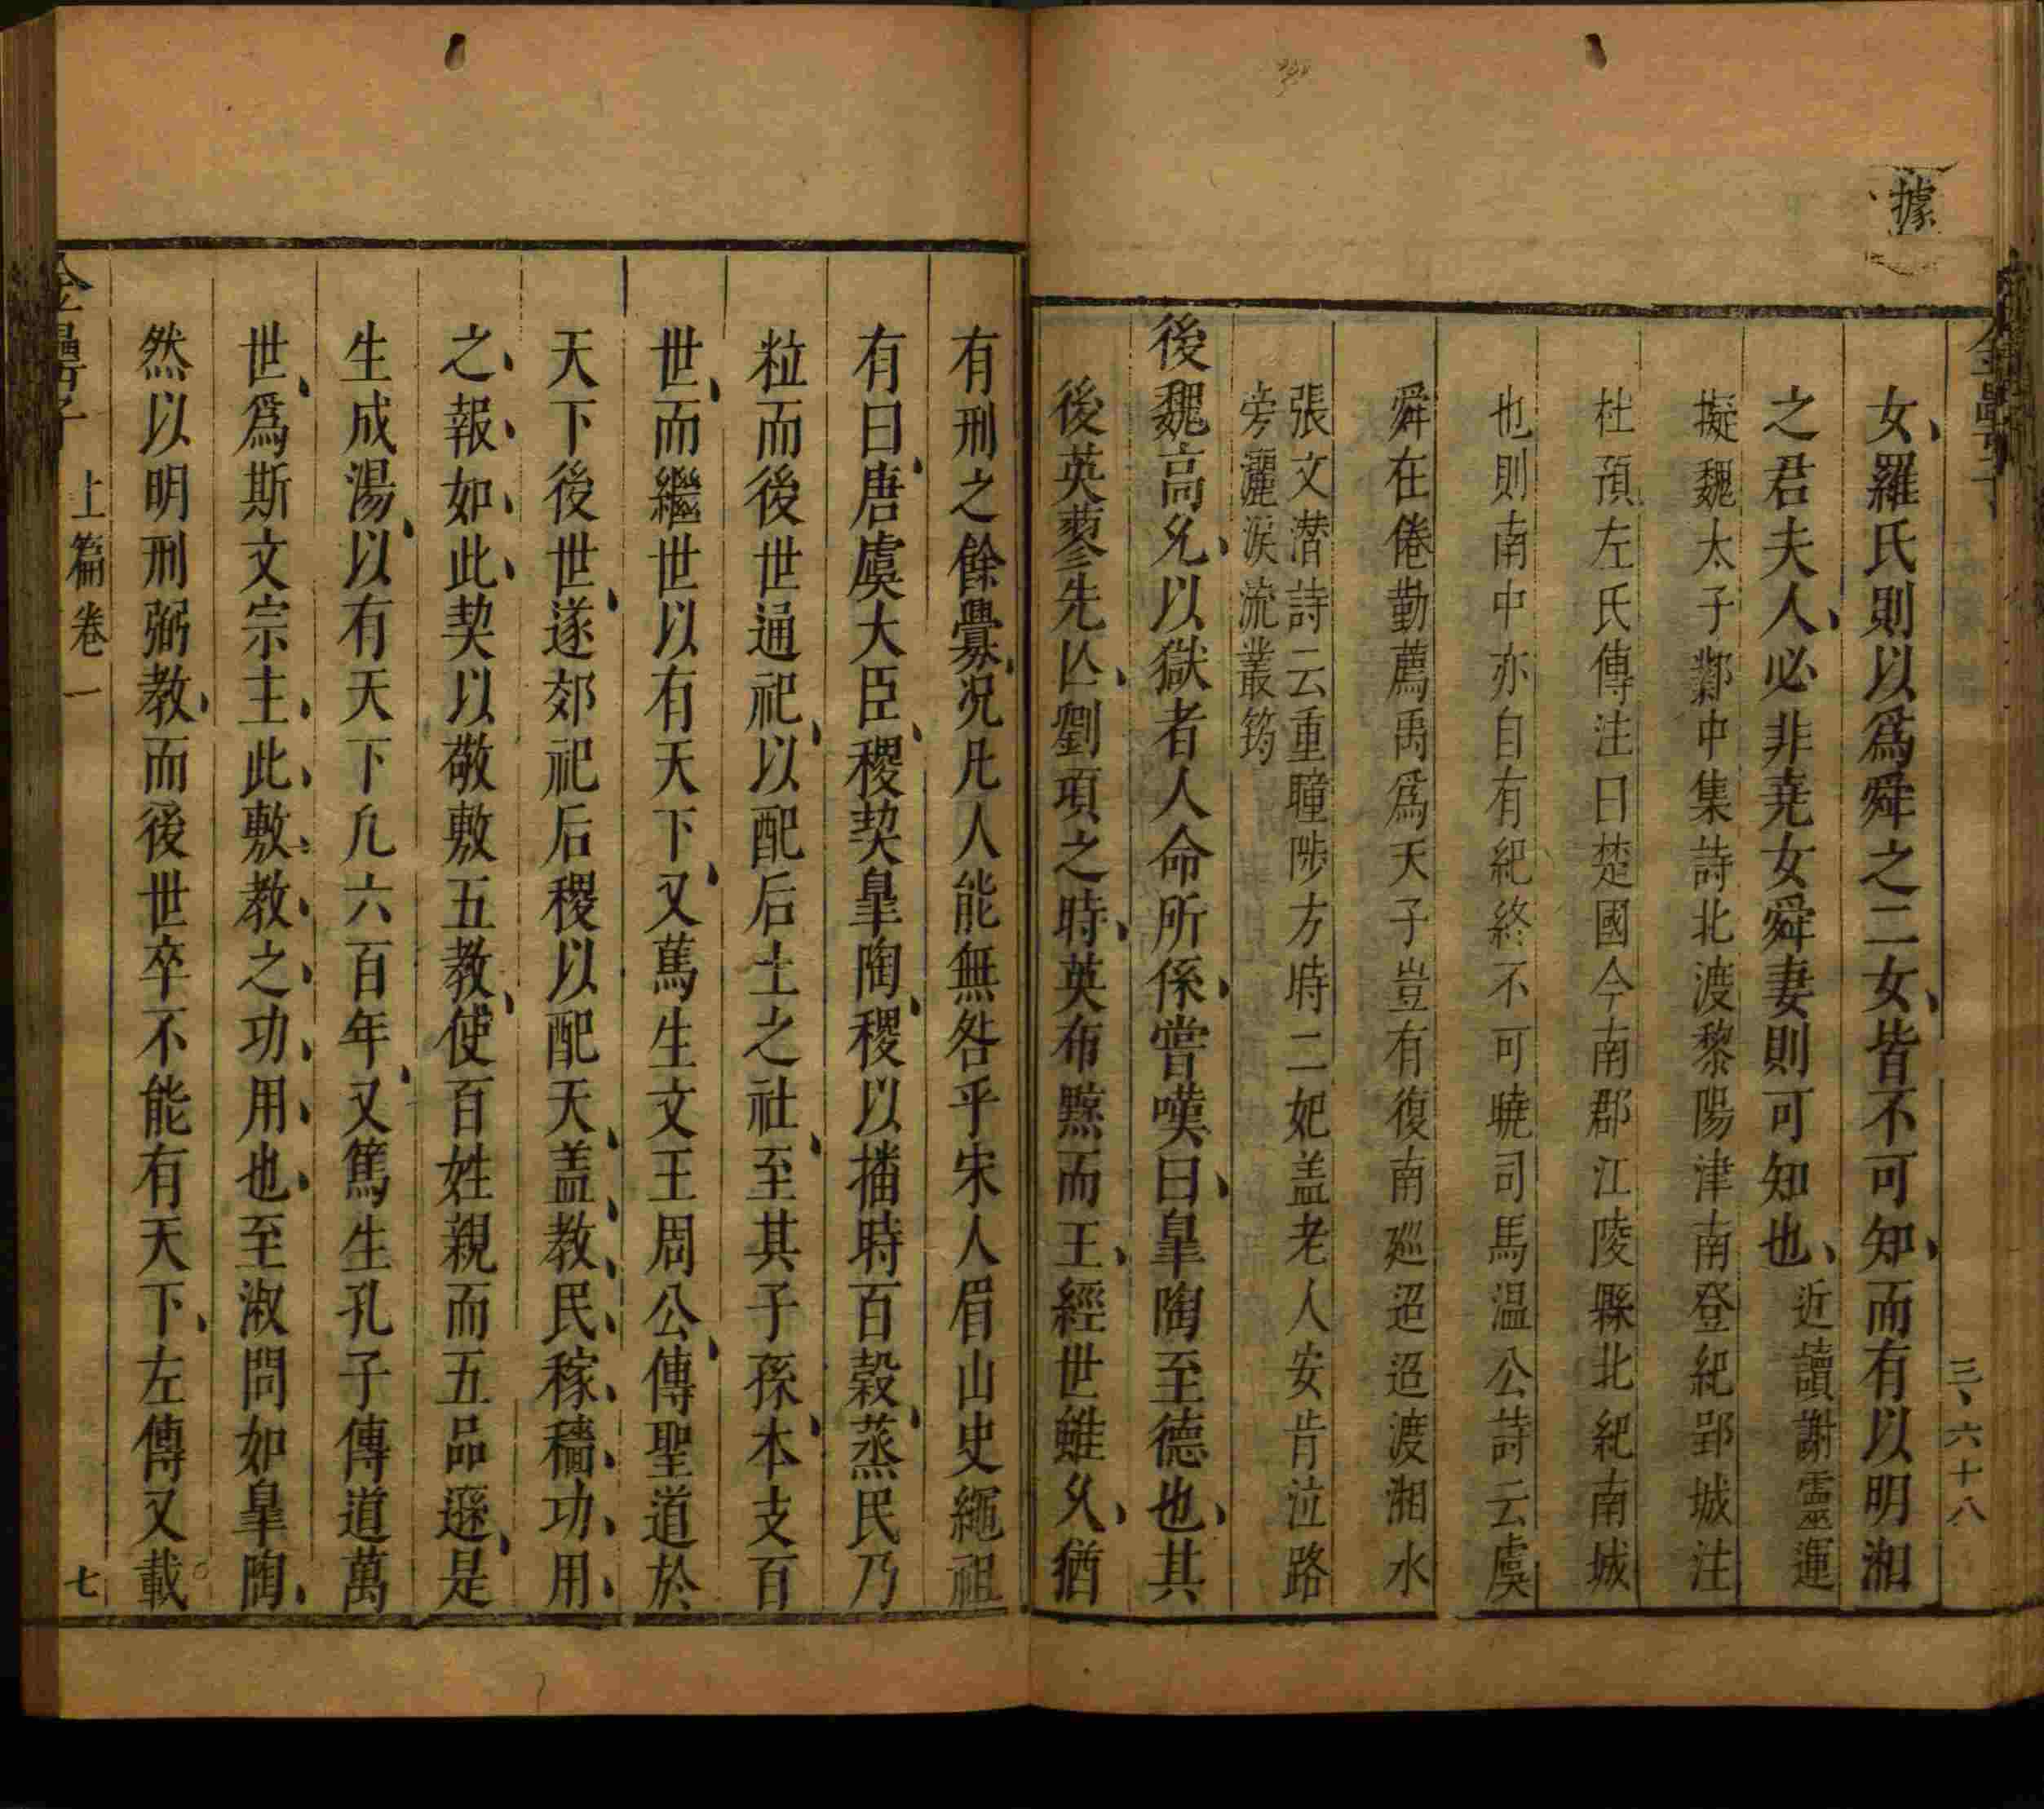 據
三、六十八
女、羅氏則以爲舜之二女、皆不可知、而有以明湘
之君夫人、必非堯女舜妻則可知也、近讀謝靈運
擬魏太子鄴中集詩北渡黎陽津南登紀郢城注
杜預左氏傳注曰楚國今南郡江陵縣北紀南城
也則南中亦自有紀終不可曉司馬温公詩云虞
舜在倦勤薦禹爲天子豈有復南廵迢迢渡湘水
張文潜詩云重瞳陟方時二妃盖老人安肯泣路
旁灑淚流叢筠
後魏高允、以獄者人命所係、嘗嘆曰、臯陶至德也、其
後英蓼先亾、劉項之時、英布黥而王、經世雖久、猶
有刑之餘釁、况凡人能無咎乎宋人眉山史繩祖
有曰、唐虞大臣、稷契臯陶、稷以播時百穀、蒸民乃
粒而後世通祀、以配后土之社、至其子孫、本支百
世、而繼世以有天下、又篤生文王周公、傳聖道於
天下後世、遂郊祀后稷以配天、盖、教、民、稼、穡、功、用、
之、報、如、此、契以敬敷五教、使百姓親而五品遜、是
生成湯、以有天下凡六百年、又篤生孔子傳道萬
世、爲斯文宗主、此、敷、教、之、功、用、也、至淑問如臯陶、
然以明刑弼教、而後世卒不能有天下、左傳又載
上篇卷一
七